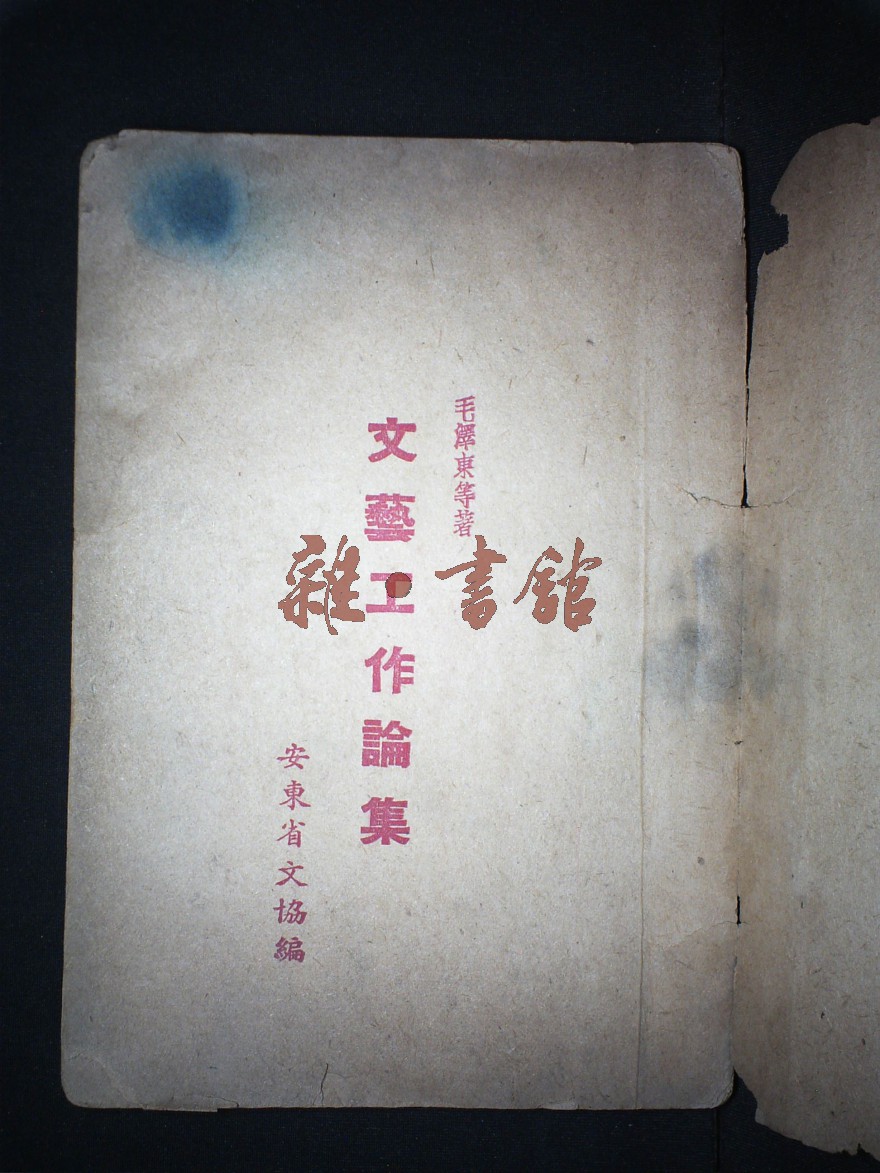 毛澤東等著
文藝工作論集
安東省文協編
雜·書館